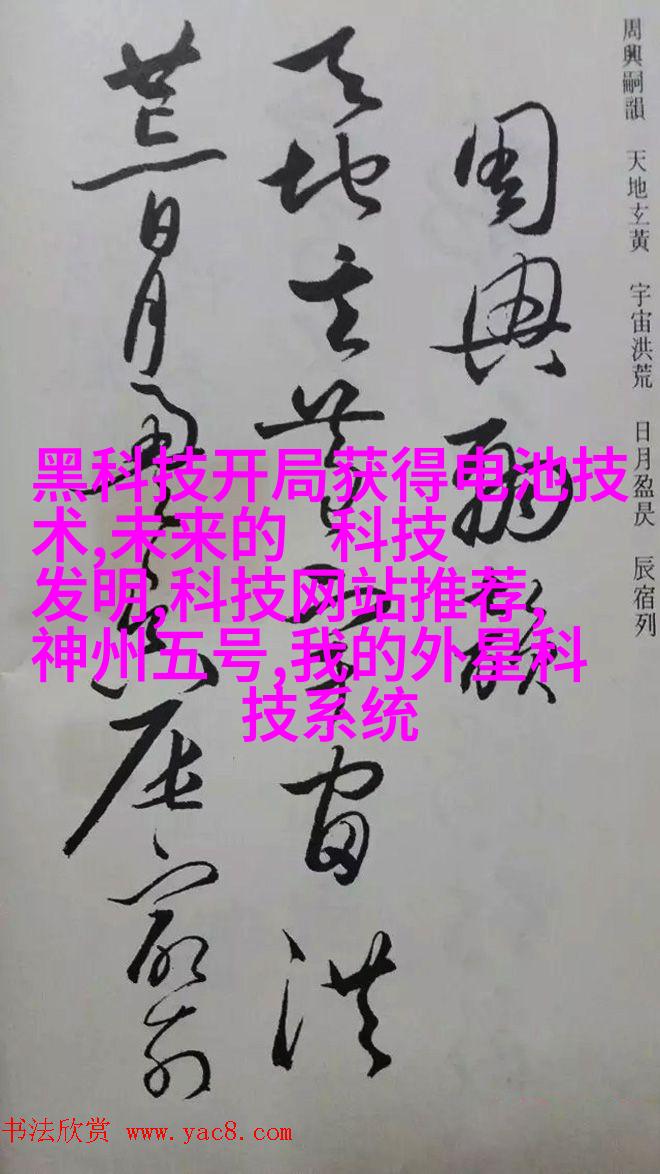 周興嗣韻 天地玄黃 宇宙洪荒 日月盈昃 辰宿列
周興嗣韻
天地玄黃宇宙洪
荒日月盈昃辰宿列
黑科技开局获得电池技
术,未来的 科技
发明,科技网站推荐,
神州五号,我的外星科
技系统
书法欣赏 www.yac8.com